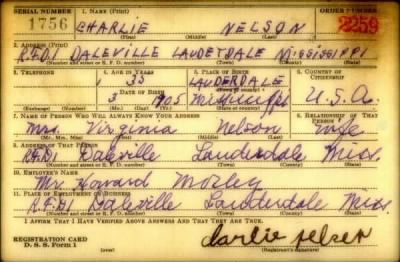 SERIAL NUMBER 1. NAME (Print) ORDER NUMBER
1756 CHARLIE NELSON 2259
2. ADDRESS (Print)
R.F.D.1 DALEVILLE LAUDETDALE MISSISSIPPI
(Number and street or R. F. D. number) (Town) (County) (State)
3. TELEPHONE 4. AGE IN YEARS 5. PLACE OF BIRTH 6. COUNTRY OF CITIZENSHIP
35 LAUDERDALE
DATE OF BIRTH
1905 Mississippi U.S.A.
(Exchange) (Number) (Mo.) (Day) (Yr.) (State or country)
7. NAME OF PERSON WHO WILL ALWAYS KNOW YOUR ADDRESS 8. RELATIONSHIP OF THAT PERSON
Mrs. Virginia Nelson Wife
(Mr., Mrs., Miss) (First) (Middle) (Last)
9. ADDRESS OF THAT PERSON
R.F.D.1 Daleville Lauderdale Miss.
(Number and street or R. F. D. number) (Town) (County) (State)
10. EMPLOYER'S NAME
Mr. Howard Mosley
11. PLACE OF EMPLOYMENT OR BUSINESS
R.F.D.1 Daleville Lauderdale Miss.
(Number and street or R. F. D. number) (Town) (County) (State)
I AFFIRM THAT I HAVE VERIFIED ABOVE ANSWERS AND THAT THEY ARE TRUE.
REGISTRATION CARD
D. S. S. Form 1 (Registrant's signature)